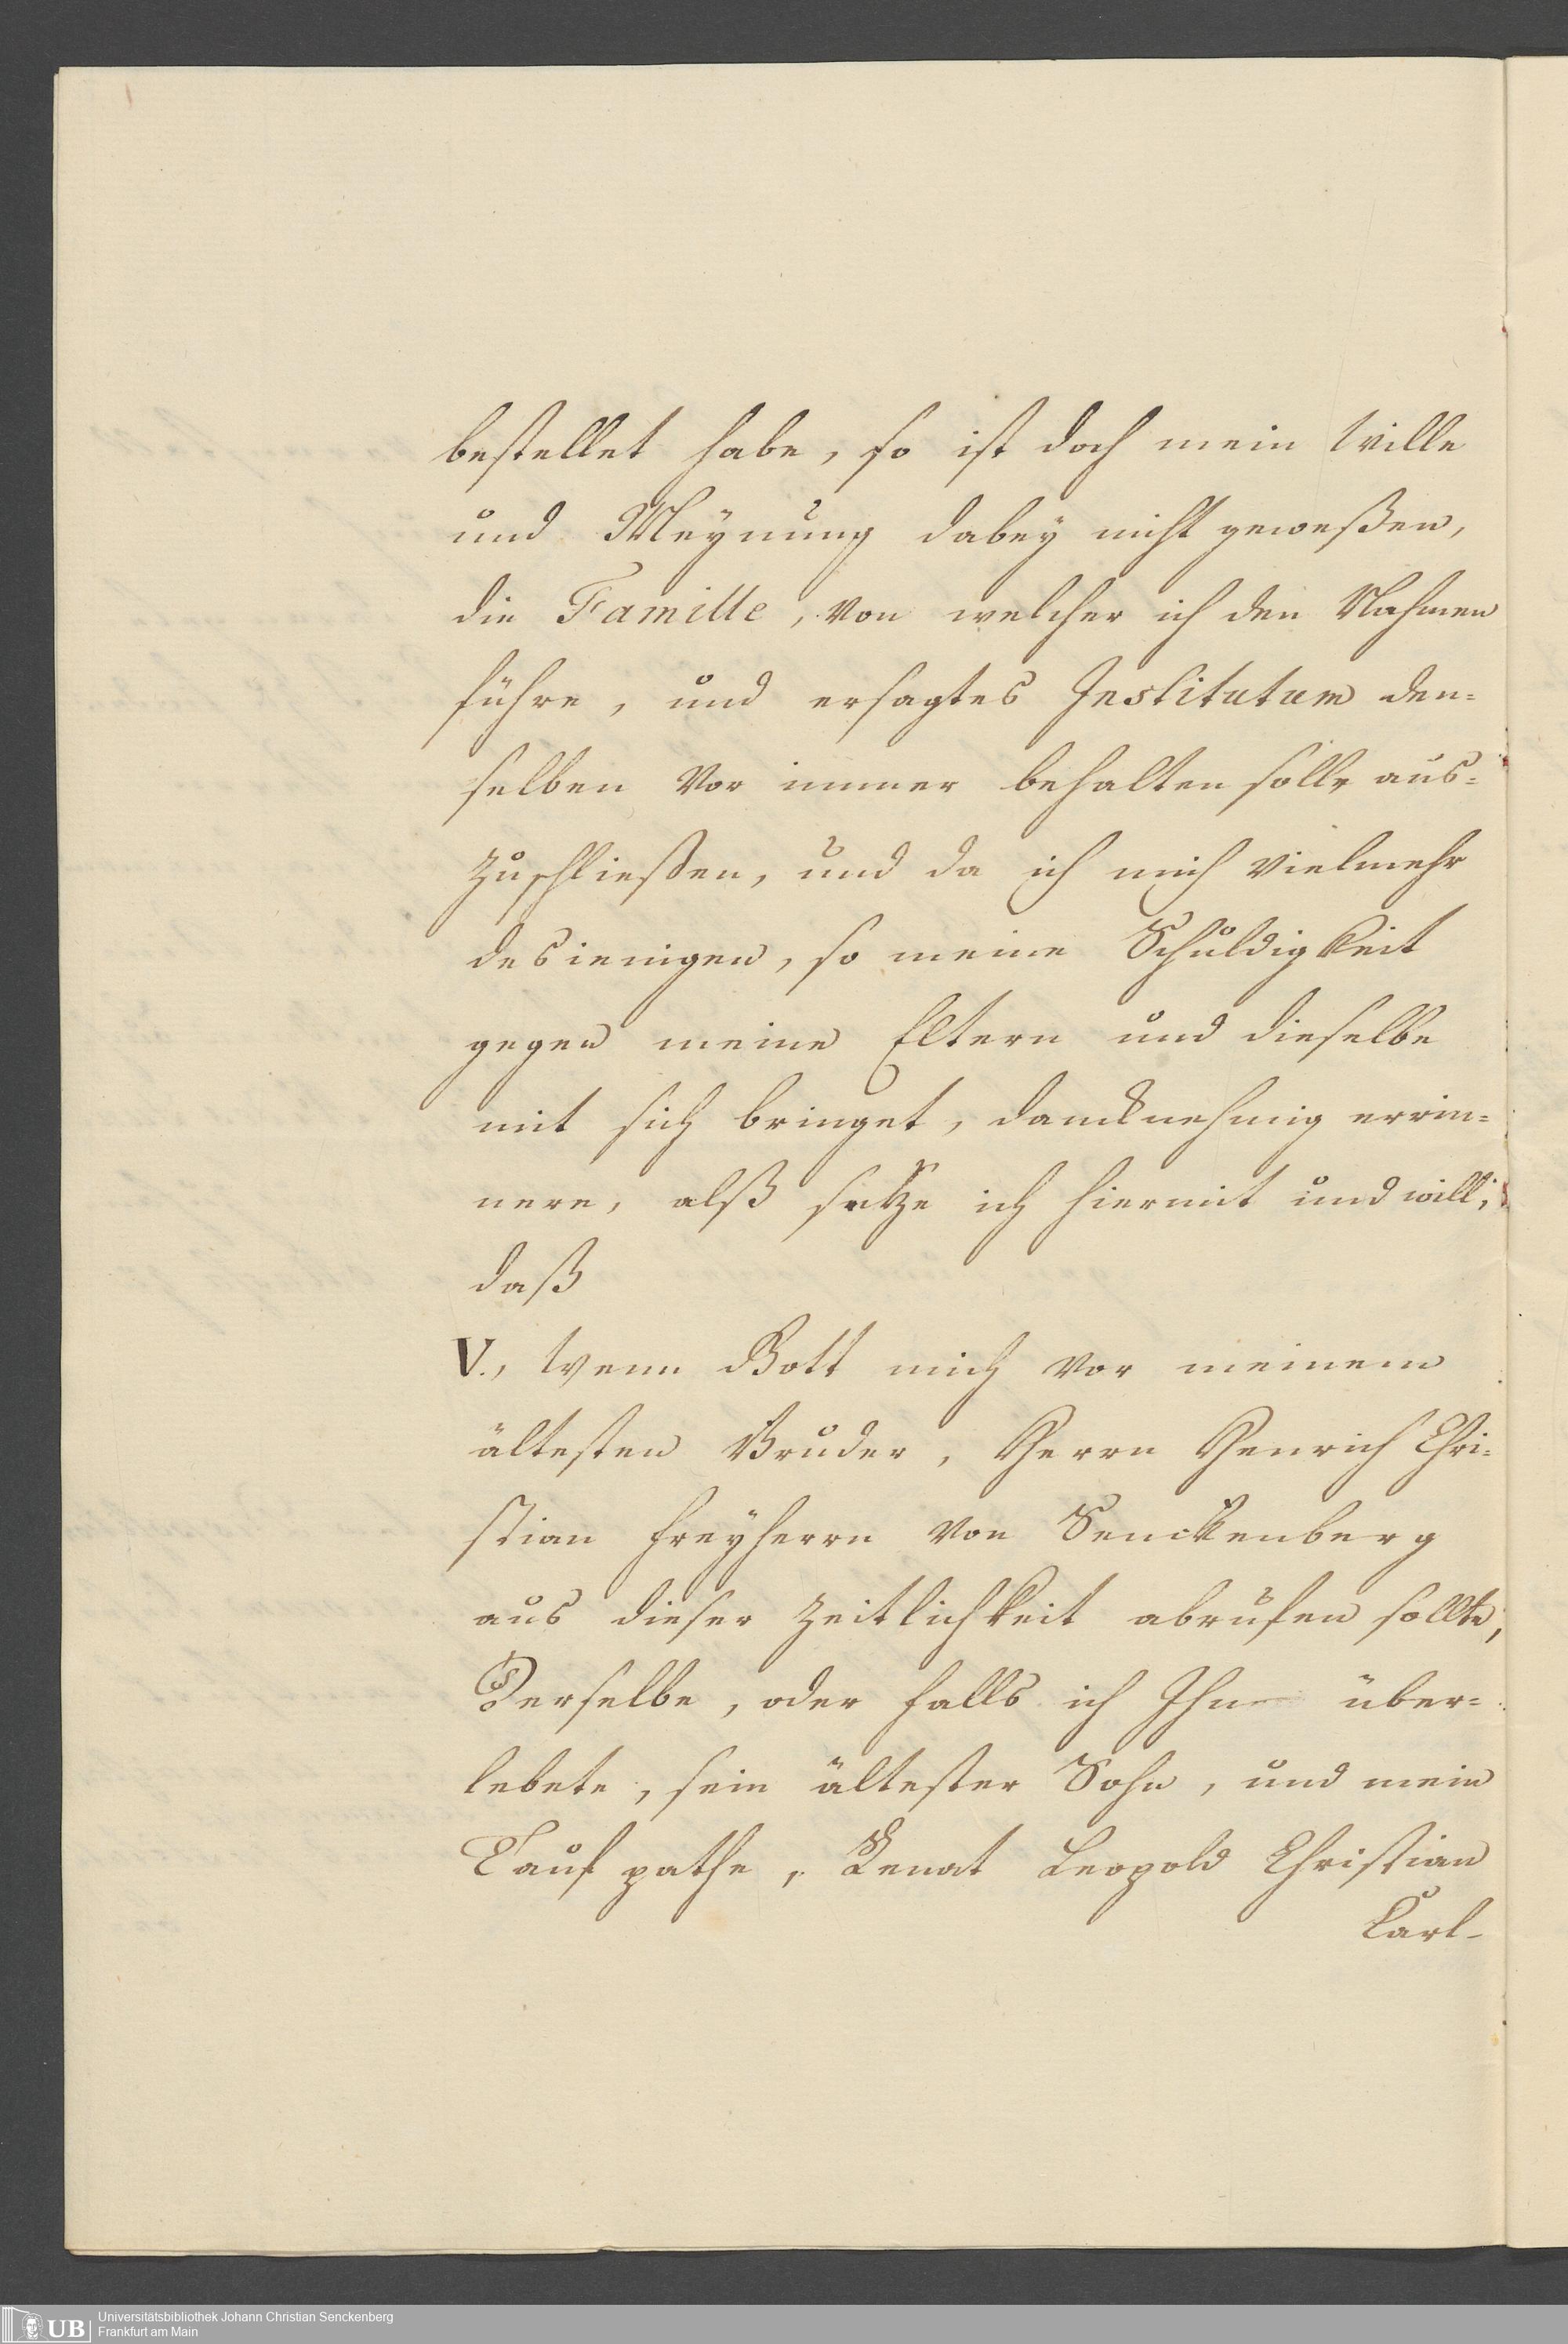 bestellet habe, so ist doch mein Wille
und Meynung dabey nicht geweßen,
die Famille, von welcher ich den Nahmen
führe, und ersagtes Institutum den=
selben vor immer behalten solle aus=
zuschließen, und da ich mich vielmehr
desienigen, so meine Schuldigkeit
gegen meine Eltern und dieselbe
mit sich bringet, dancknehmig errin=
nere, alß setze ich hiermit und will,
daß
V., Wenn Gott mich vor meinem
ältesten Bruder, Herrn Henrich Chri=
stian Freyherrn von Senckenberg
aus dieser Zeitlichkeit abrufen sollte,
Derselbe, oder falls ich Ihn über=
lebete, sein ältester Sohn, und mein
Tauf pathe, Renat Leopold Christian
Karl-
Universitätsbibliothek Johann Christian Senckenberg
Frankfurt am Main
UB